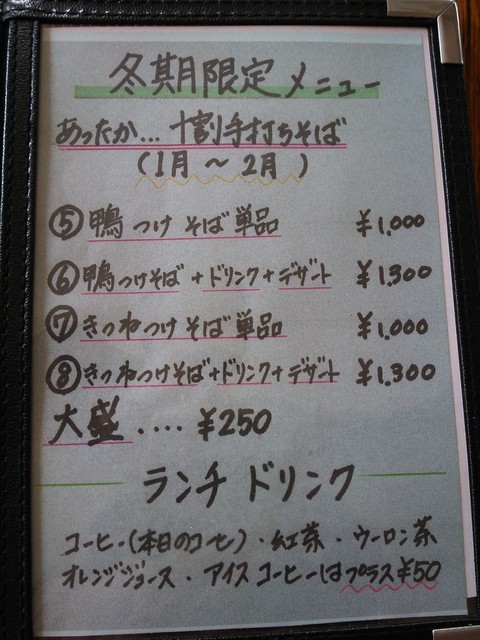 冬期限定メニュー
あったか... 十割手打ちそば
(1月 ～ 2月 )
⑤ 鴨つけ そば 単品 ¥1,000
⑥ 鴨つけそば + ドリンク + デザート ¥1,300
⑦ きつねつけ そば 単品 ¥1,000
⑧ きつねつけそば + ドリンク + デザート ¥1,300
大盛 .... ¥250
ランチ ドリンク
コーヒー(本日のコーヒー)・紅茶・ウーロン茶
オレンジジュース・アイスコーヒーはプラス¥50